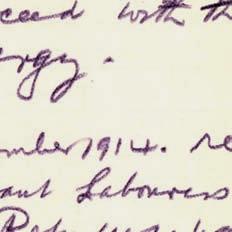 ceed with th
ergy.
mber 1914. re
ant Labouress